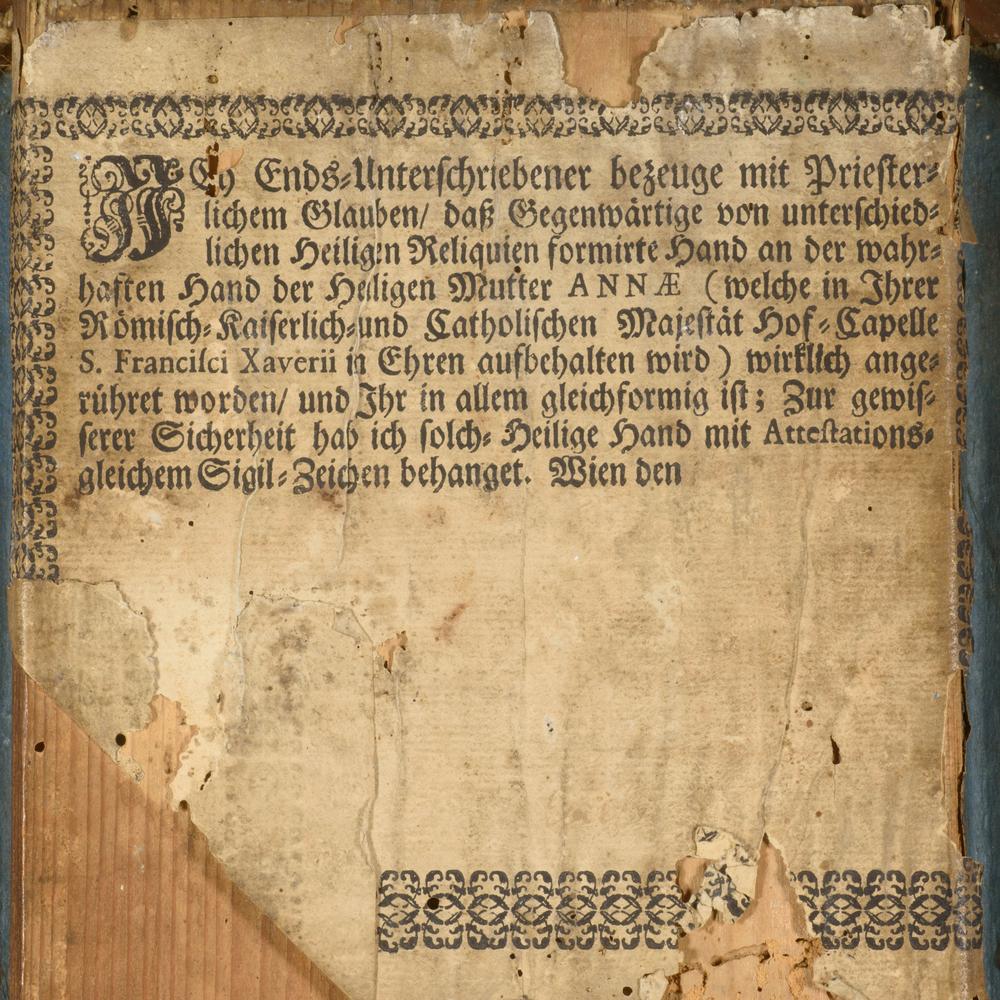 JCh Ends-Unterschriebener bezeuge mit Priester-
lichem Glauben/ daß Gegenwärtige von unterschied-
lichen Heiligen Reliquien formirte Hand an der wahr-
haften Hand der Heiligen Mutter ANNÆ (welche in Ihrer
Römisch-Kaiserlich-und Catholischen Majestät Hof-Capelle
S. Francisci Xaverii in Ehren aufbehalten wird) wirklich ange-
rühret worden/ und Ihr in allem gleichformig ist; Zur gewis-
serer Sicherheit hab ich solch- Heilige Hand mit Attestations-
gleichem Sigil-Zeichen behanget. Wien den